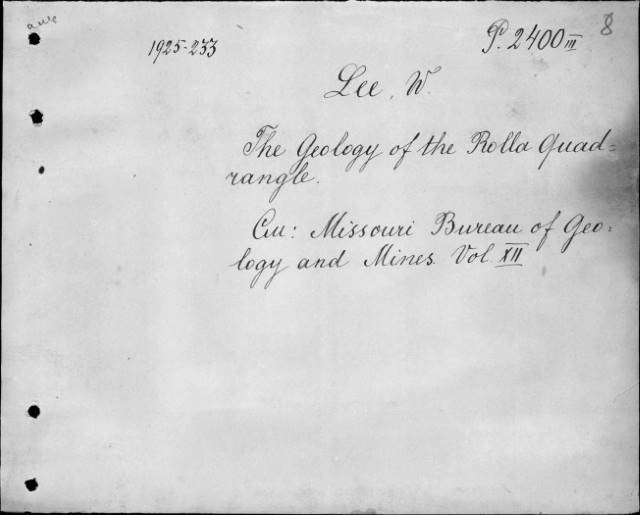 1925-233
P. 2400 III
8
Lee, W.
The Geology of the Rolla Quad=
rangle.
См: Missouri Bureau of Geo=
logy and Mines. Vol. XII